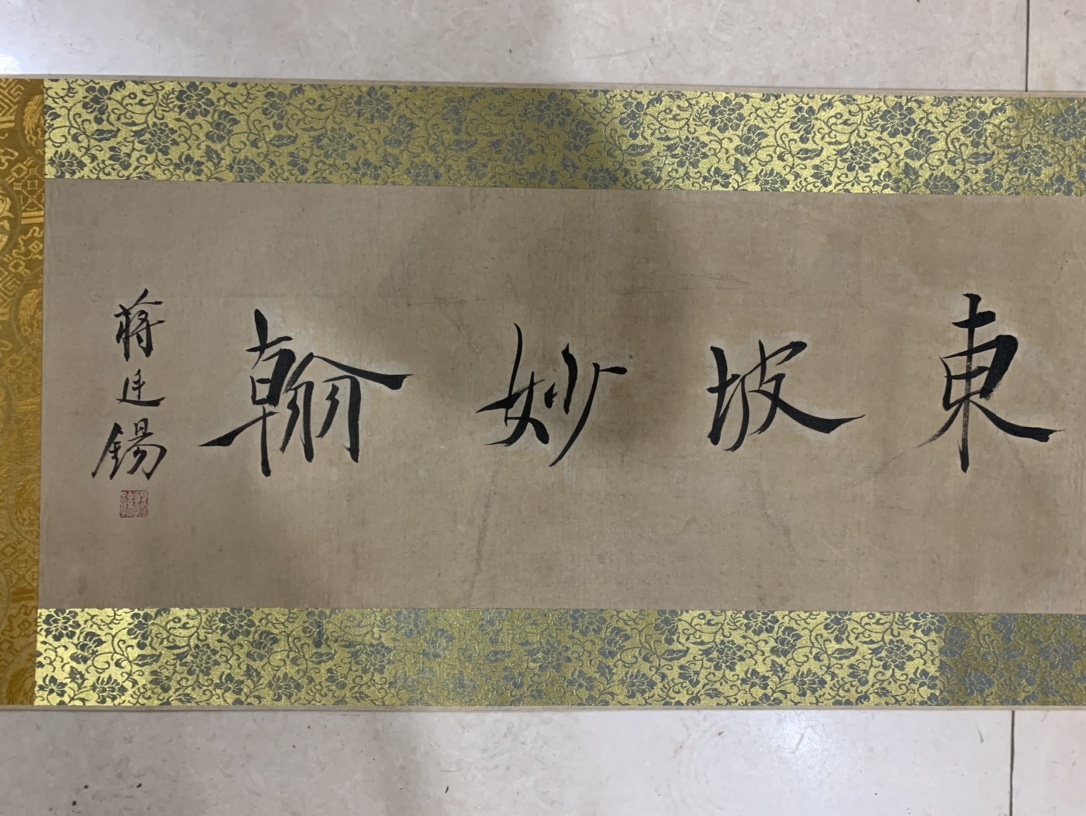 東坡妙翰
蔣廷錫